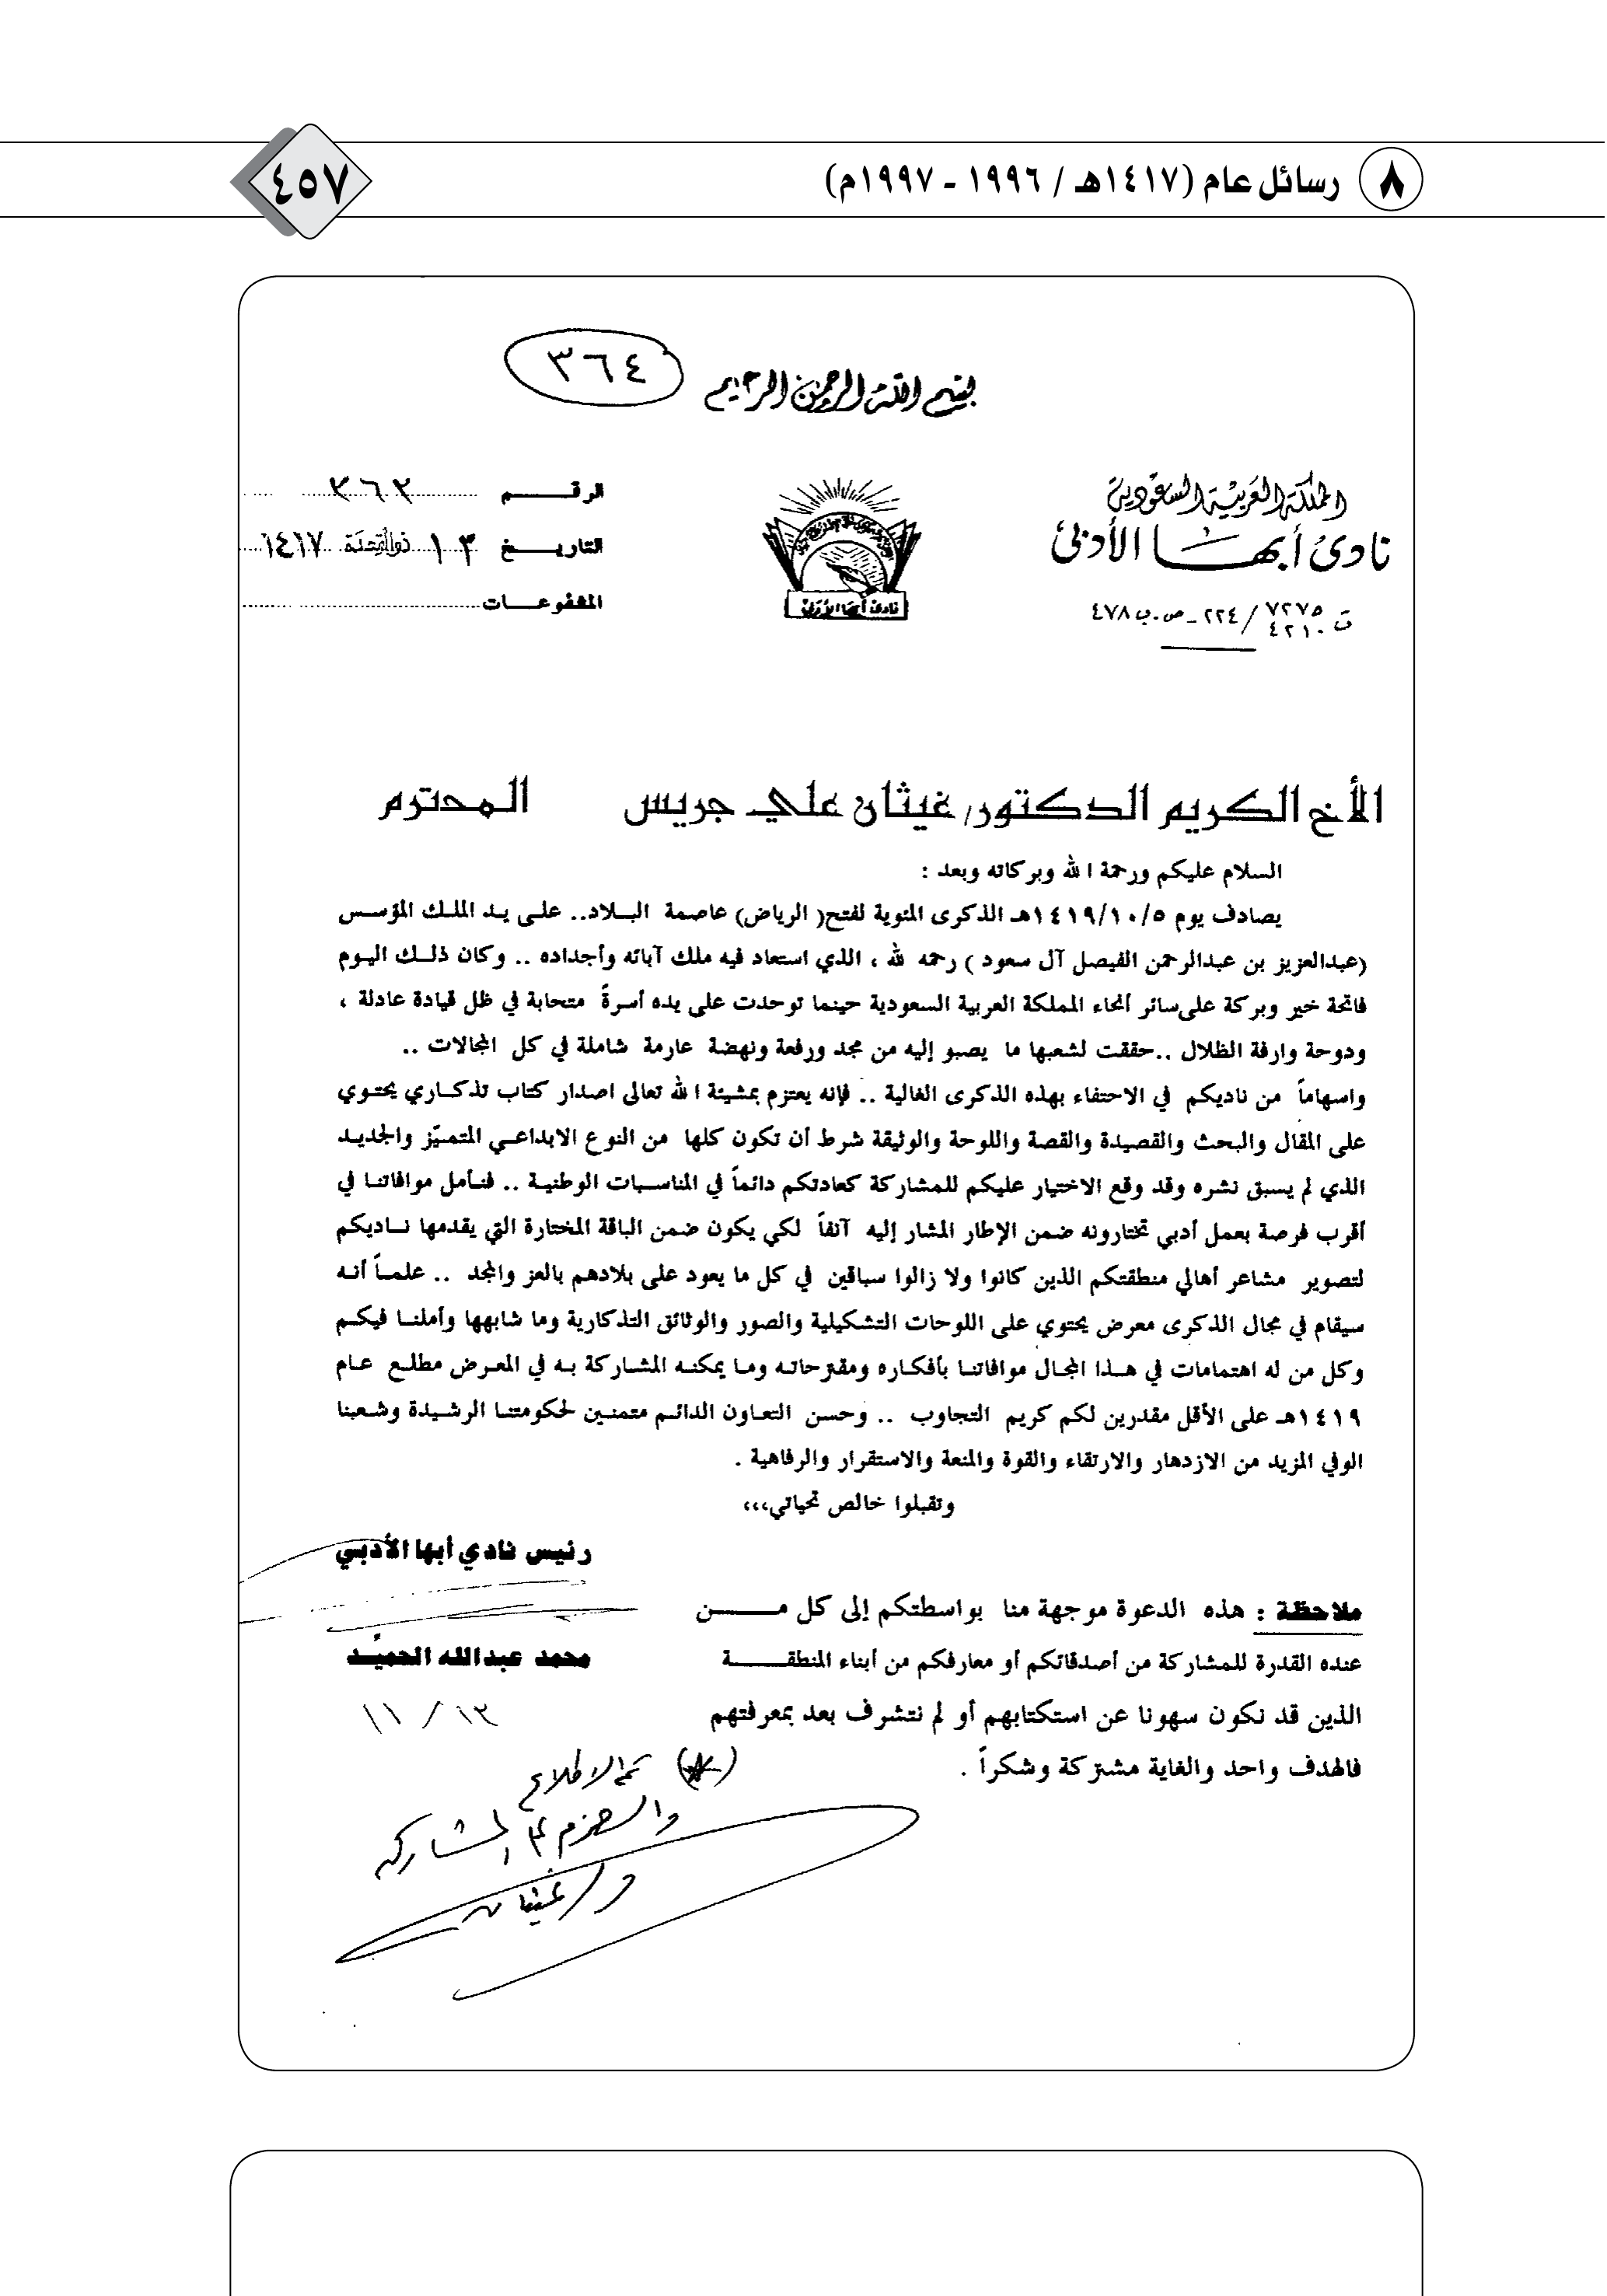 ٨ رسائل عام (١٤١٧هـ / ١٩٩٦ - ١٩٩٧م)
٤٥٧
٣٦٤
بسم الله الرحمن الرحيم
المملكة العربية السعودية
نادي أبها الأدبي
ت ٧٢٧٥ / ٢٢٤ - ص.ب ٤٧٨
٤٢١٠
نادي أبها الأدبي
الرقـــــم ٣٦٢
التاريـــخ ١٣ ذو القعدة ١٤١٧
المشفوعـات
الأخ الكريم الدكتور/ غيثان علي جريس المحترم
السلام عليكم ورحمة الله وبركاته وبعد :
يصادف يوم ١٤١٩/١٠/٥هـ الذكرى المئوية لفتح( الرياض) عاصمة البـلاد.. علـى يـد الملـك المؤسـس
(عبدالعزيز بن عبدالرحمن الفيصل آل سعود ) رحمه لله ، الذي استعاد فيه ملك آبائه وأجداده .. وكان ذلـك اليـوم
فاتحة خير وبركة على سائر أنحاء المملكة العربية السعودية حينما توحدت على يده أسرةً متحابة في ظل قيادة عادلة ،
ودوحة وارفة الظلال ..حققت لشعبها ما يصبو إليه من مجد ورفعة ونهضة عارمة شاملة في كل المجالات ..
واسهاماً من ناديكم في الاحتفاء بهذه الذكرى الغالية .. فإنه يعتزم بمشيئة الله تعالى اصدار كتاب تذكـاري يحتـوي
على المقال والبحث والقصيدة والقصة واللوحة والوثيقة شرط أن تكون كلها من النوع الابداعـي المتمـيّز والجديـد
الذي لم يسبق نشره وقد وقع الاختيار عليكم للمشاركة كعادتكم دائماً في المناسـبات الوطنيـة .. فنـأمل موافاتنـا في
أقرب فرصة بعمل أدبي تختارونه ضمن الإطار المشار إليه آنفاً لكي يكون ضمن الباقة المختارة التي يقدمها نـاديكم
لتصوير مشاعر أهالي منطقتكم الذين كانوا ولا زالوا سباقين في كل ما يعود على بلادهم بالعز والمجد .. علمـاً أنـه
سيقام في مجال الذكرى معرض يحتوي على اللوحات التشكيلية والصور والوثائق التذكارية وما شابهها وأملنـا فيكـم
وكل من له اهتمامات في هـذا المجـال موافاتنـا بأفكـاره ومقترحاتـه ومـا يمكنـه المشـاركة بـه في المعـرض مطلـع عـام
١٤١٩هـ على الأقل مقدرين لكم كريم التجاوب .. وحسن التعـاون الدائـم متمنـين لحكومتنـا الرشـيدة وشـعبنا
الوفي المزيد من الازدهار والارتقاء والقوة والمنعة والاستقرار والرفاهية .
وتقبلوا خالص تحياتي،،،
رئيس نادي أبها الأدبي
محمد عبدالله الحميّـد
١١/١٣
ملاحظة : هذه الدعوة موجهة منا بواسطتكم إلى كل مـــــن
عنده القدرة للمشاركة من أصدقائكم أو معارفكم من أبناء المنطقـــــة
الذين قد نكون سهونا عن استكتابهم أو لم نتشرف بعد بمعرفتهم
فالهدف واحد والغاية مشتركة وشكراً .
(*) تم الاطلاع
المشاركة
د/ غيثان